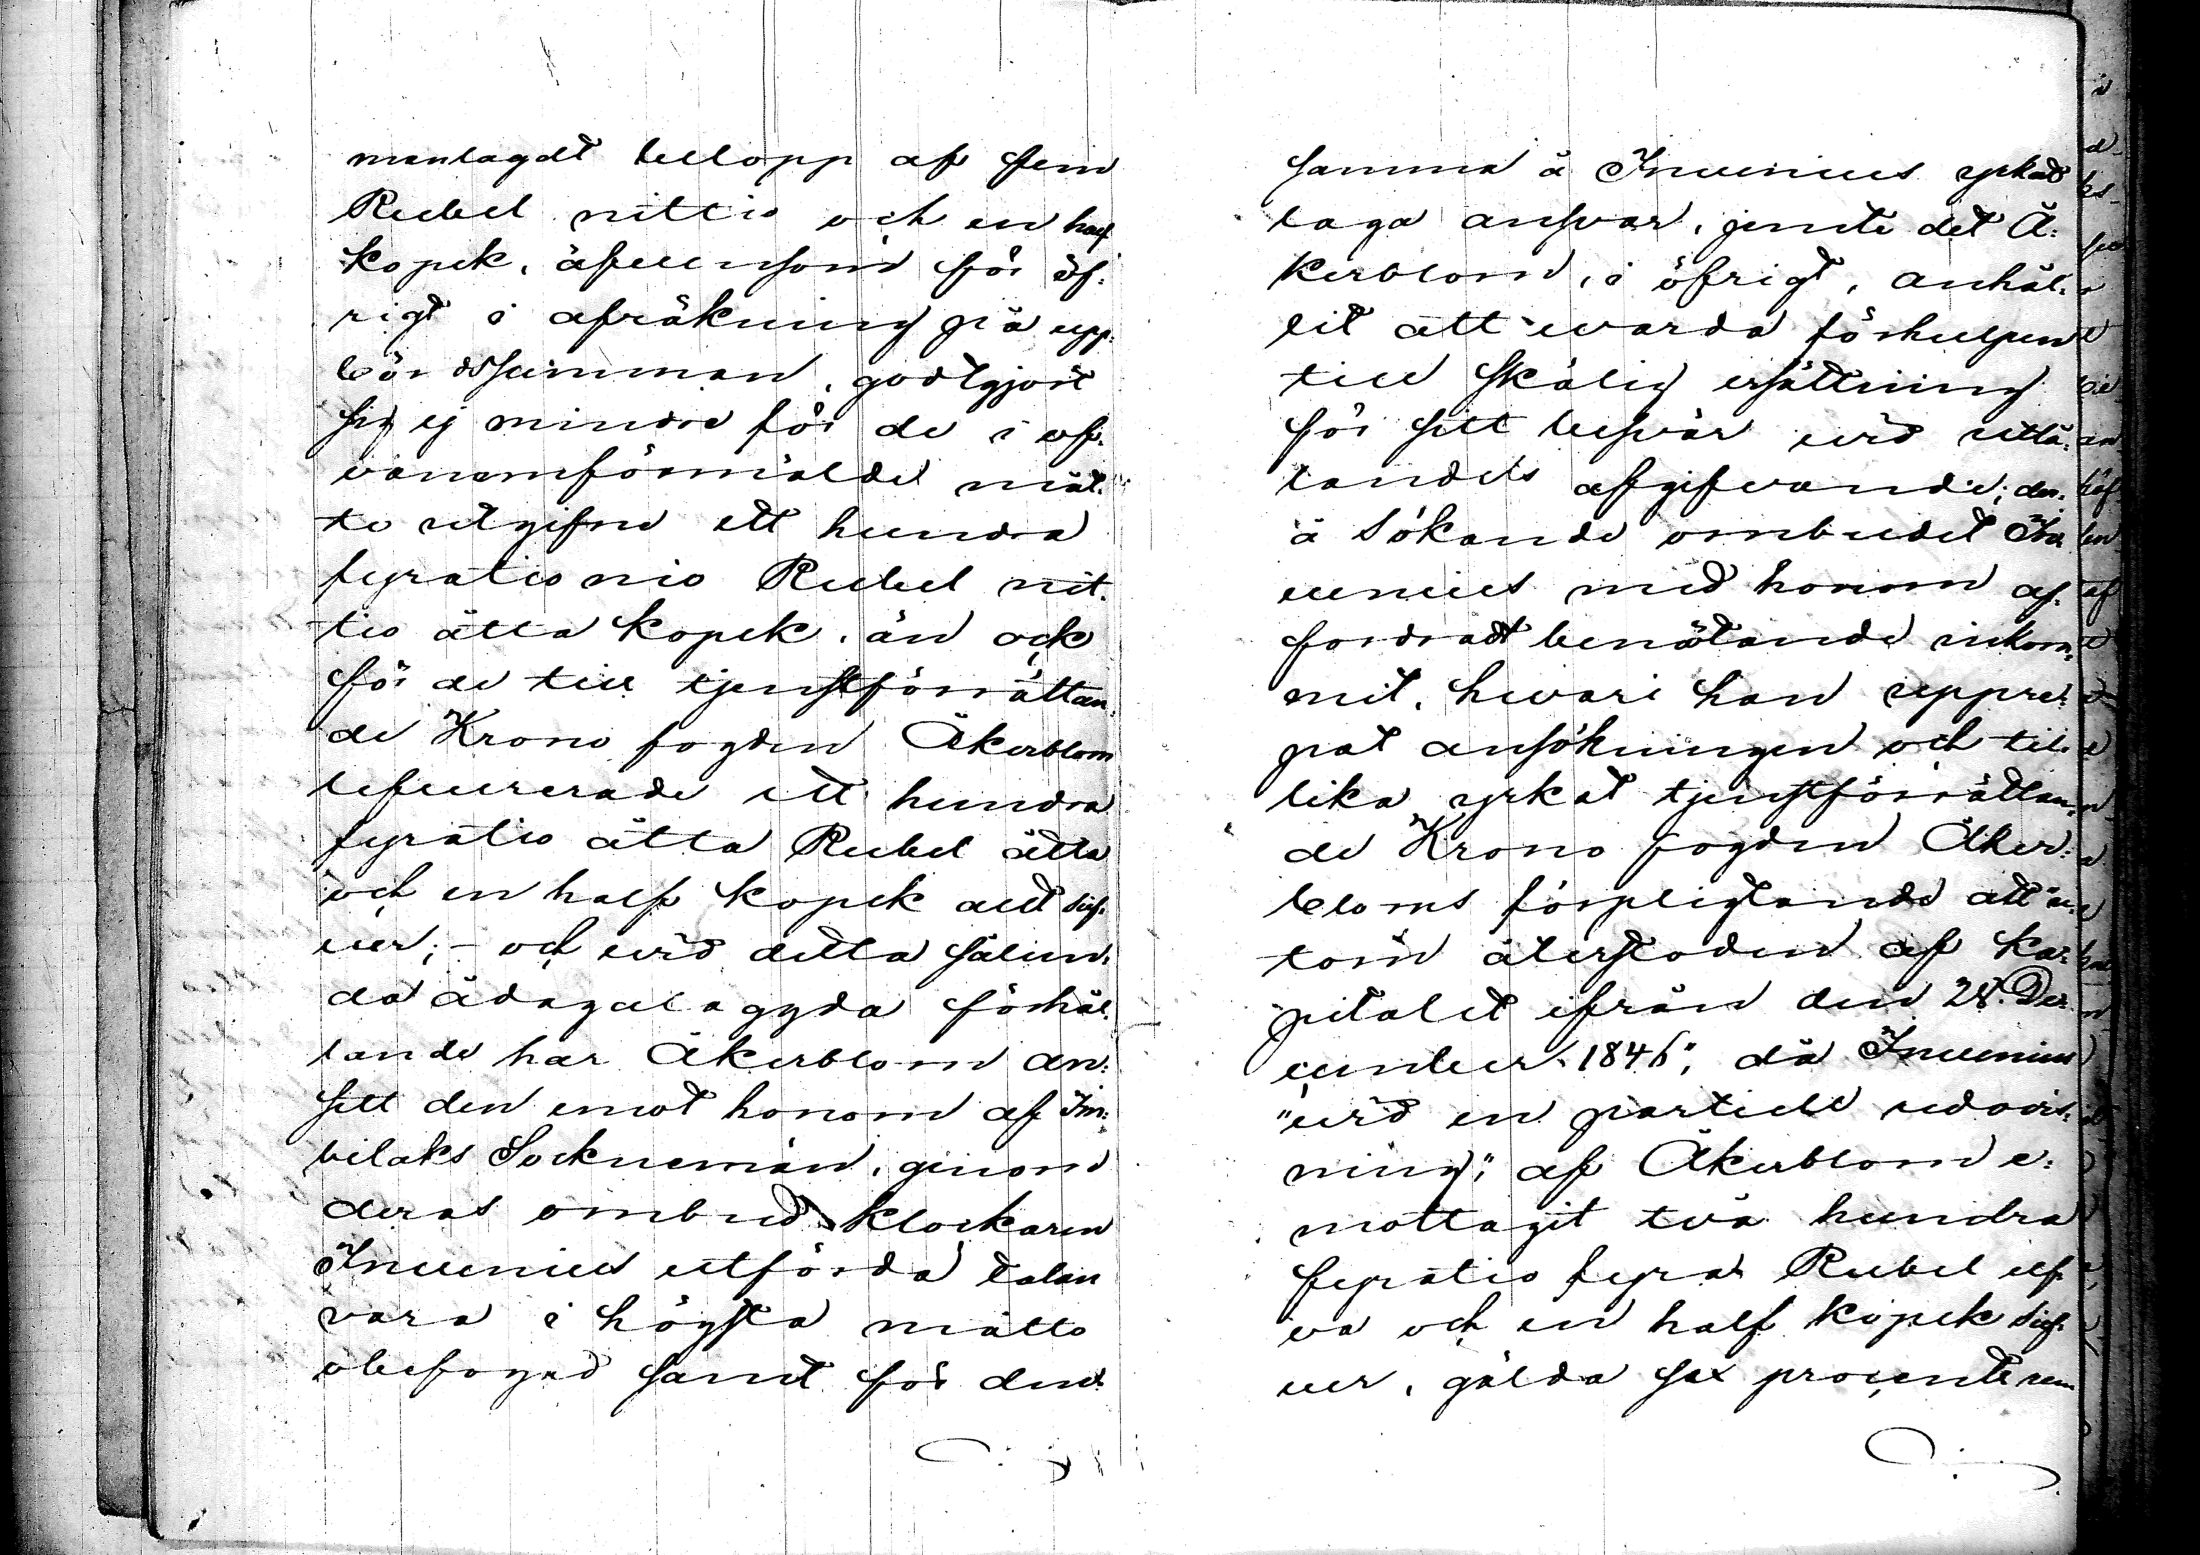 manlagdt belopp af fem
Rubel nittio och en half
kopek, äfvensom för öf:
rigt i afräkning på upp:
bördssumman, godtgjort
sig ej mindre för de i of:
vanomförmälde måt:
to utgifne ett hundra
fyratio nio Rubel nit:
tio åtta kopek, än ock
för de till tjenstförrättan:
de Krono fogden Åkerblom
lefvererade ett hundra
fyratio åtta Rubel åtta
och en half kopek allt Silf:
ver; – och vid detta sålun:
da ådagalagda förhål:
lande har Åkerblom an:
sett den emot honom af Im:
bilaks Socknemän, genom
deras ombud Klockaren
Invenius utförda talan
vara i högsta måtto
obefogad samt för den:
samma å Invenius yrkat
laga ansvar, jemte det Å:
kerblom, i öfrigt, anhål:
lit att varda förhulpen
till skälig ersättning
för sitt besvär vid utlå:
tandets afgifvande; der:
å Sökande ombudet In
venius med honom af:
fordradt bemötande inkom:
mit, hvari han uppre:
pat ansökningen och till
lika yrkat tjenstförrättan:
de Krono fogden Åker:
bloms förpligtande att u:
tom återstoden af Ka:
pitalet ifrån den 28. De:
cember 1846", då Invenius
"vid en partiell redovis:
ning", af Åkerblom e:
mottagit två hundra
fyratio fyra Rubel elf
va och en half kopek Silf:
ver, gälda sex procents ren